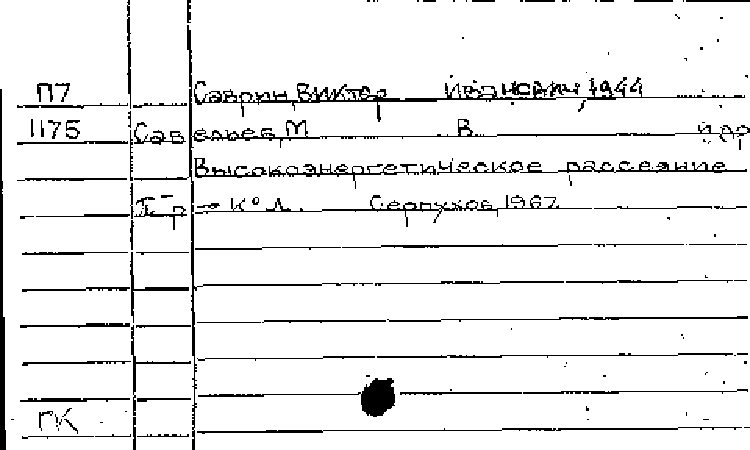 П7 Саврин, Виктор Иванович, 1944
1175 Савельев, М. В. и др
Высокоэнергетическое рассеяние
π⁻p → K⁰Λ. Серпухов, 1967
ПК